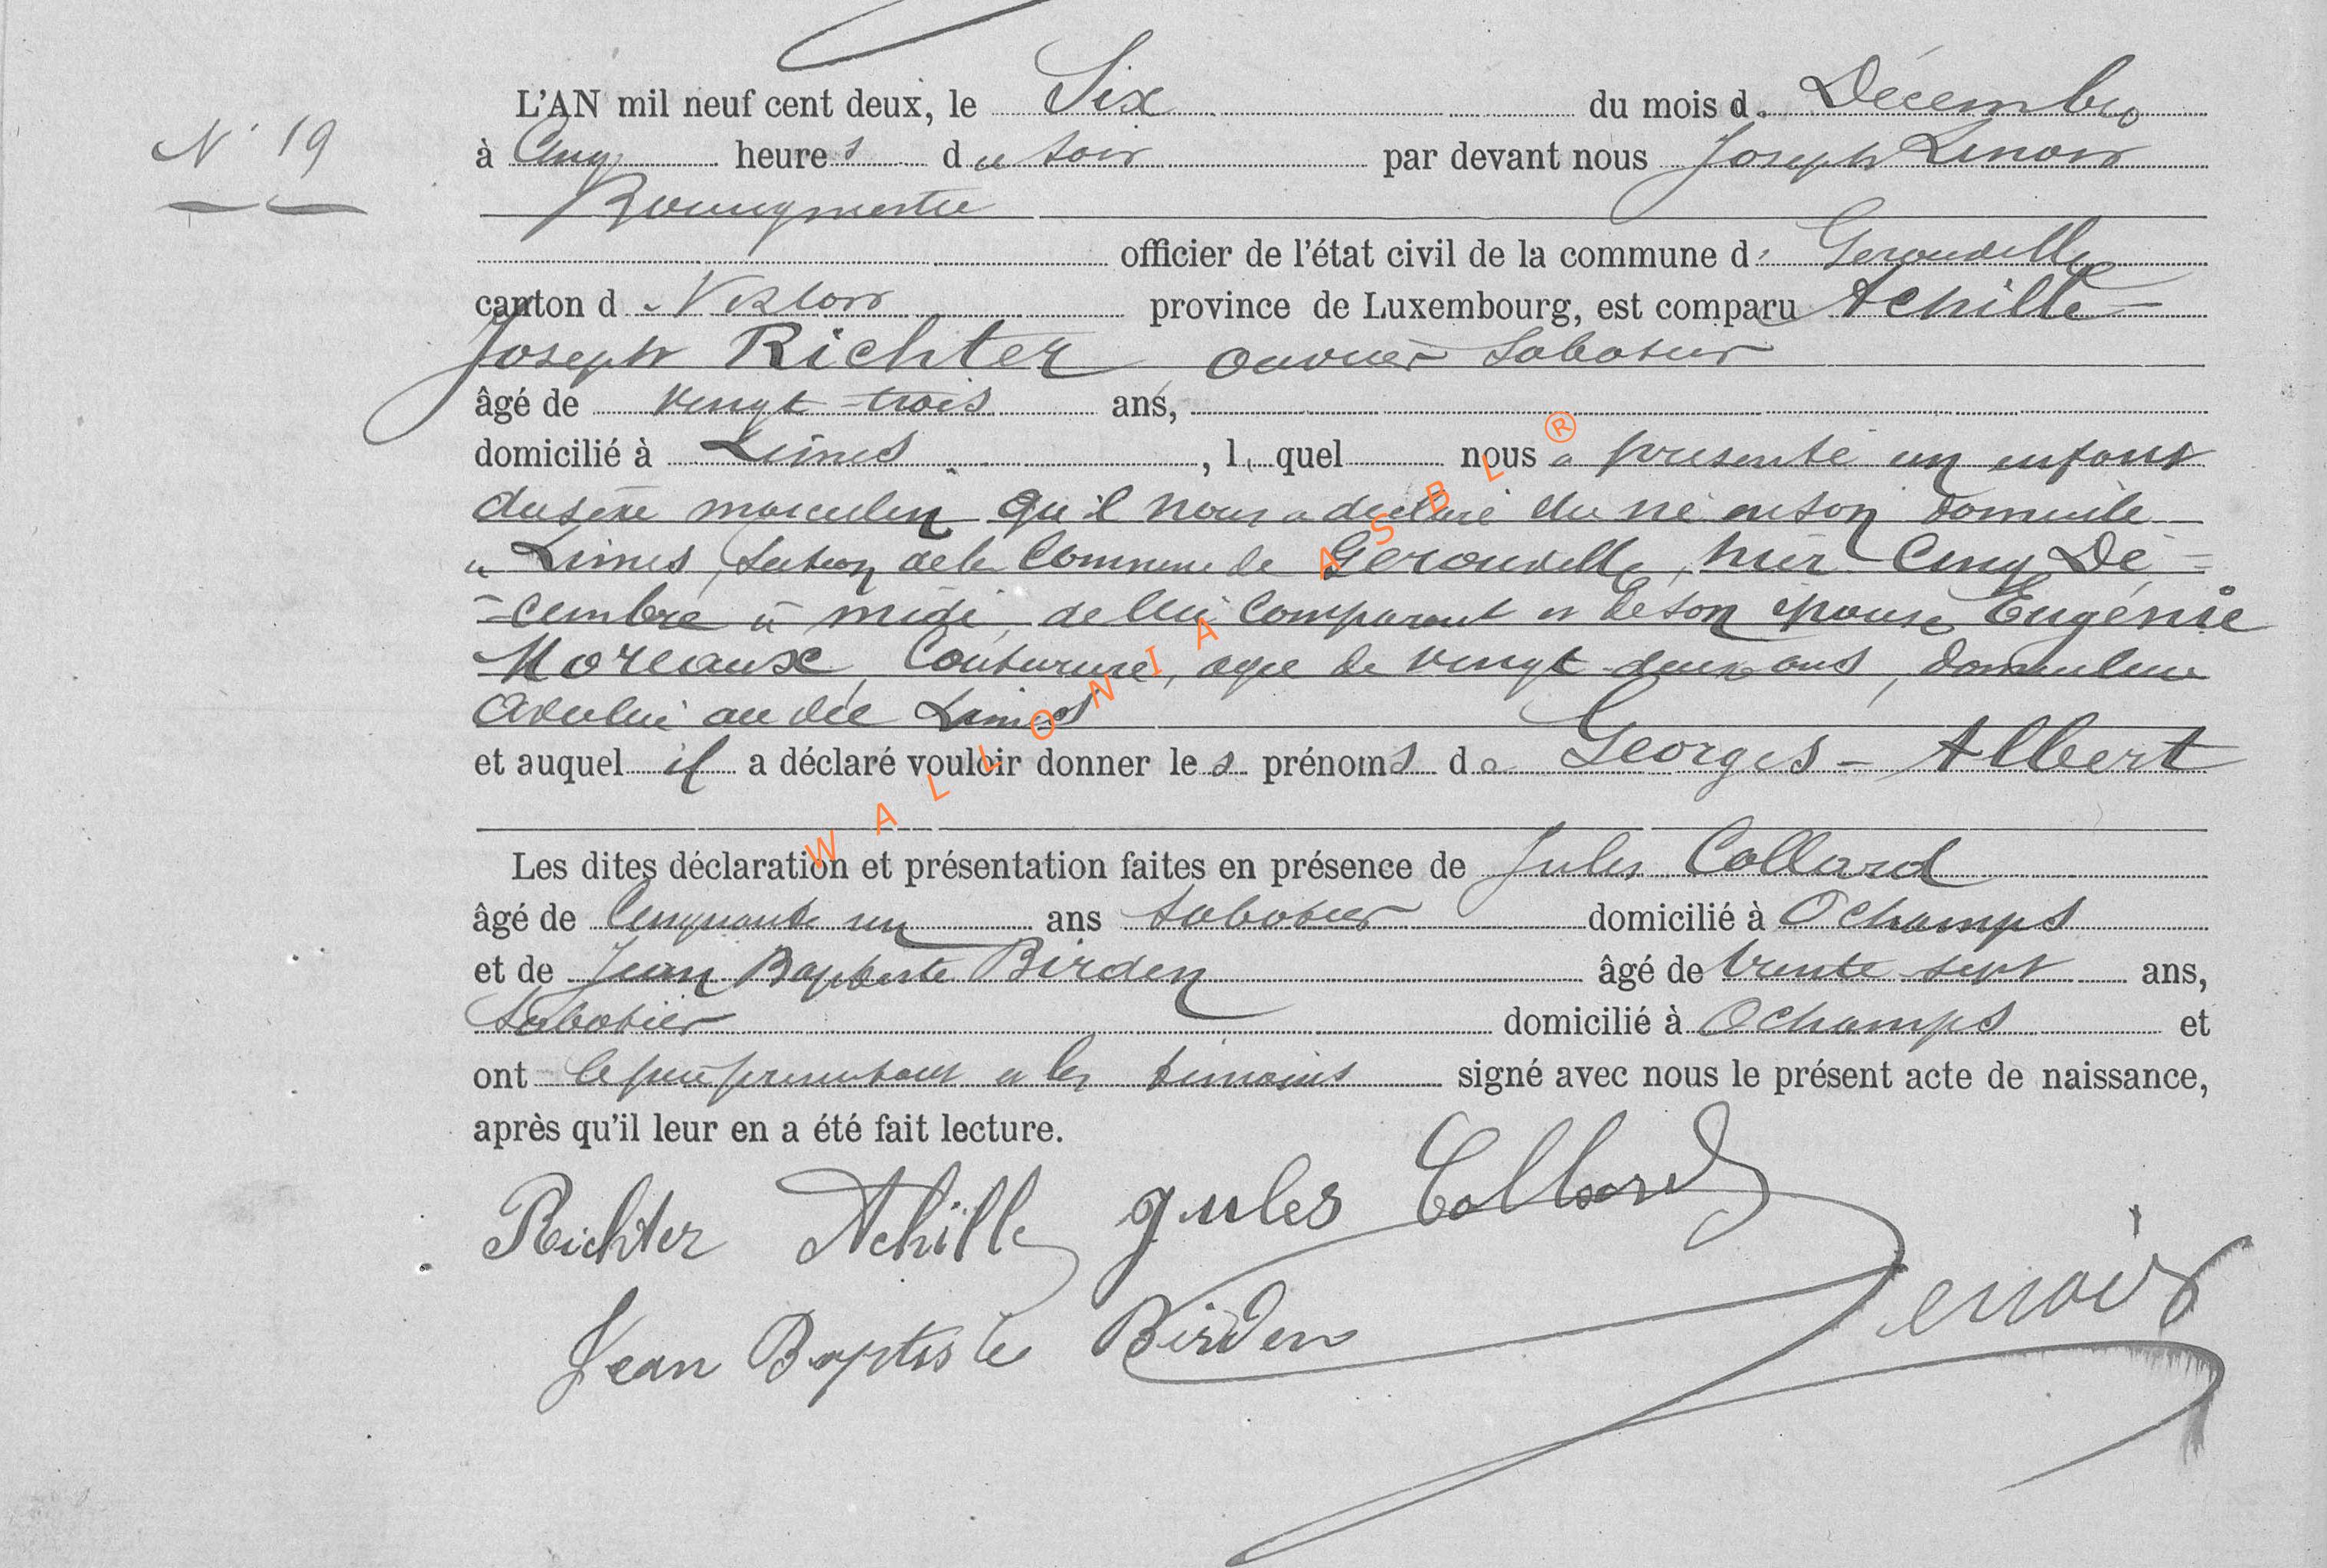 L'AN mil neuf cent deux, le Six du mois de Décembre
N° 19
à Cinq heures du soir par devant nous Joseph Lenoir
Bourgmestre
officier de l'état civil de la commune de Gerouville
canton de Virton province de Luxembourg, est comparu Achille-
Joseph Richter, ouvrier sabotier
âgé de vingt-trois ans,
domicilié à Limes, lequel nous a présenté un enfant
du sexe masculin qu'il nous a déclaré être né en son domicile
à Limes, section de la Commune de Gerouville, hier Cinq Dé-
-cembre à midi, de lui Comparant et de son épouse Eugénie
Moreaux, Couturière, agée de vingt-deux ans, domiciliée
avec lui au dit Limes
et auquel il a déclaré vouloir donner les prénoms de Georges-Albert
WALLONIA ASBL ®
Les dites déclaration et présentation faites en présence de Jules Collard
âgé de Cinquante un ans sabotier domicilié à Ochamps
et de Jean Baptiste Birden âgé de trente sept ans,
Sabotier domicilié à Ochamps et
ont le père présentant et les témoins signé avec nous le présent acte de naissance,
après qu'il leur en a été fait lecture.
Richter Achille Jules Collard
Jean Baptiste Birden Lenoir